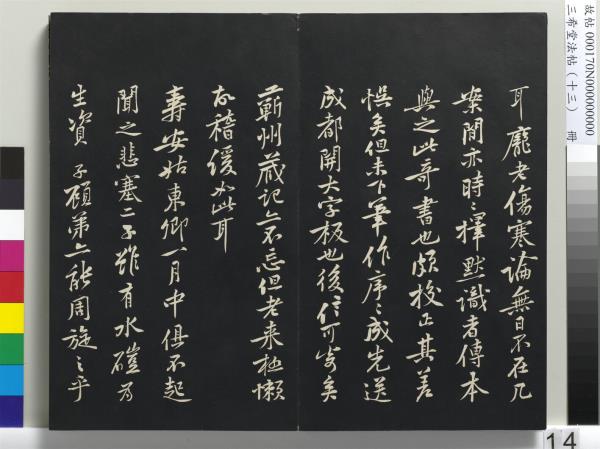 耳龐老傷寒論無日不在几
案閒亦時〻擇默識者傳本
與之此奇書也頗校正其差
悞矣但未下筆作序〻成先送
成都開大字板也後信可寄矣
蘄州藏記亦不忘但老来極懶
故稽緩如此耳
壽安姑東卿一月中俱不起
聞之悲塞二子雖有水磑為
生資子顧弟亦能周旋之乎
故帖 000170N000000000
三希堂法帖（十三） 冊
14